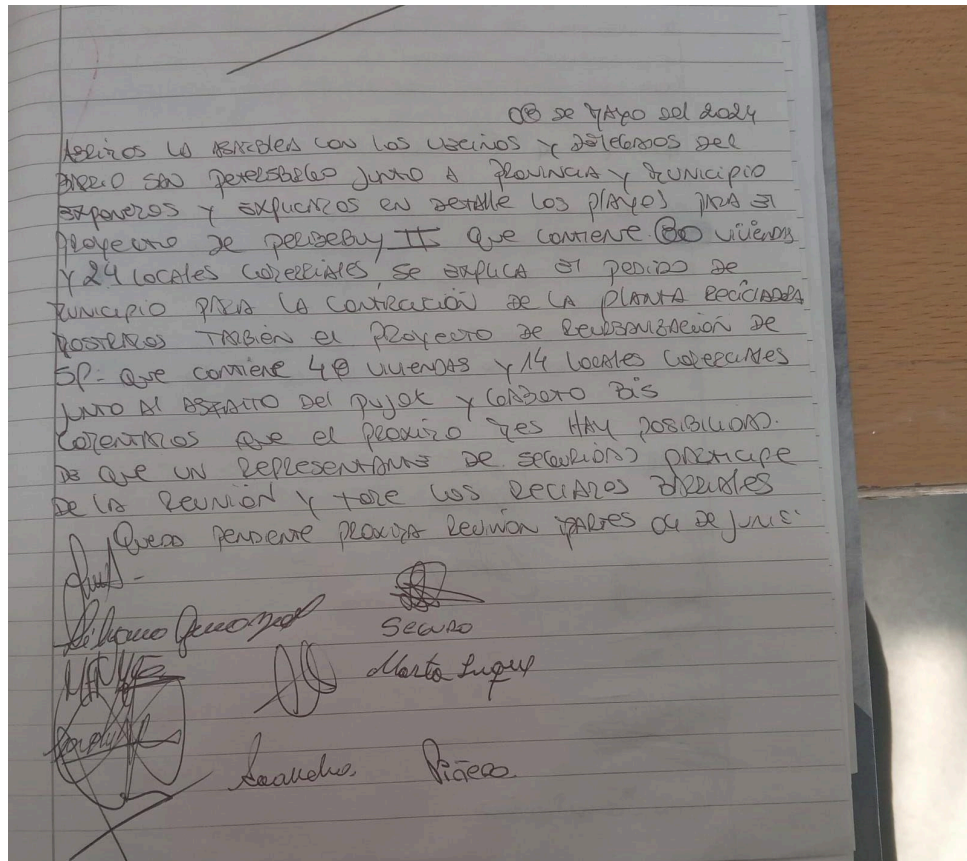 08 DE MAYO DEL 2024
ABRIMOS LA ASAMBLEA CON LOS VECINOS Y DELEGADOS DEL
BARRIO SAN PETERSBURGO JUNTO A PROVINCIA Y MUNICIPIO
EXPONEMOS Y EXPLICAMOS EN DETALLE LOS PLAYOS PARA EL
PROYECTO DE PERIBEBUY II QUE CONTIENE 80 VIVIENDAS
Y 24 LOCALES COMERCIALES, SE EXPLICA EL PEDIDO DE
MUNICIPIO PARA LA CONTRACIÓN DE LA PLANTA RECICLADORA
MOSTRAMOS TAMBIÉN EL PROYECTO DE REURBANIZACIÓN DE
SP- QUE CONTIENE 48 VIVIENDAS Y 14 LOCALES COMERCIALES
JUNTO AL ASFALTO DEL PUJOL Y BIS
COMENTAMOS QUE EL PROXIMO MES HAY POSIBILIDAD.
DE QUE UN REPRESENTANTE DE SEGURIDAD PARTICIPE
DE LA REUNIÓN Y TOME LOS RECLAMOS BARRIALES
QUEDA PENDIENTE PROXIMA REUNIÓN MARTES 04 DE JUNIO
SEGURO
Marta Luque
Piñero